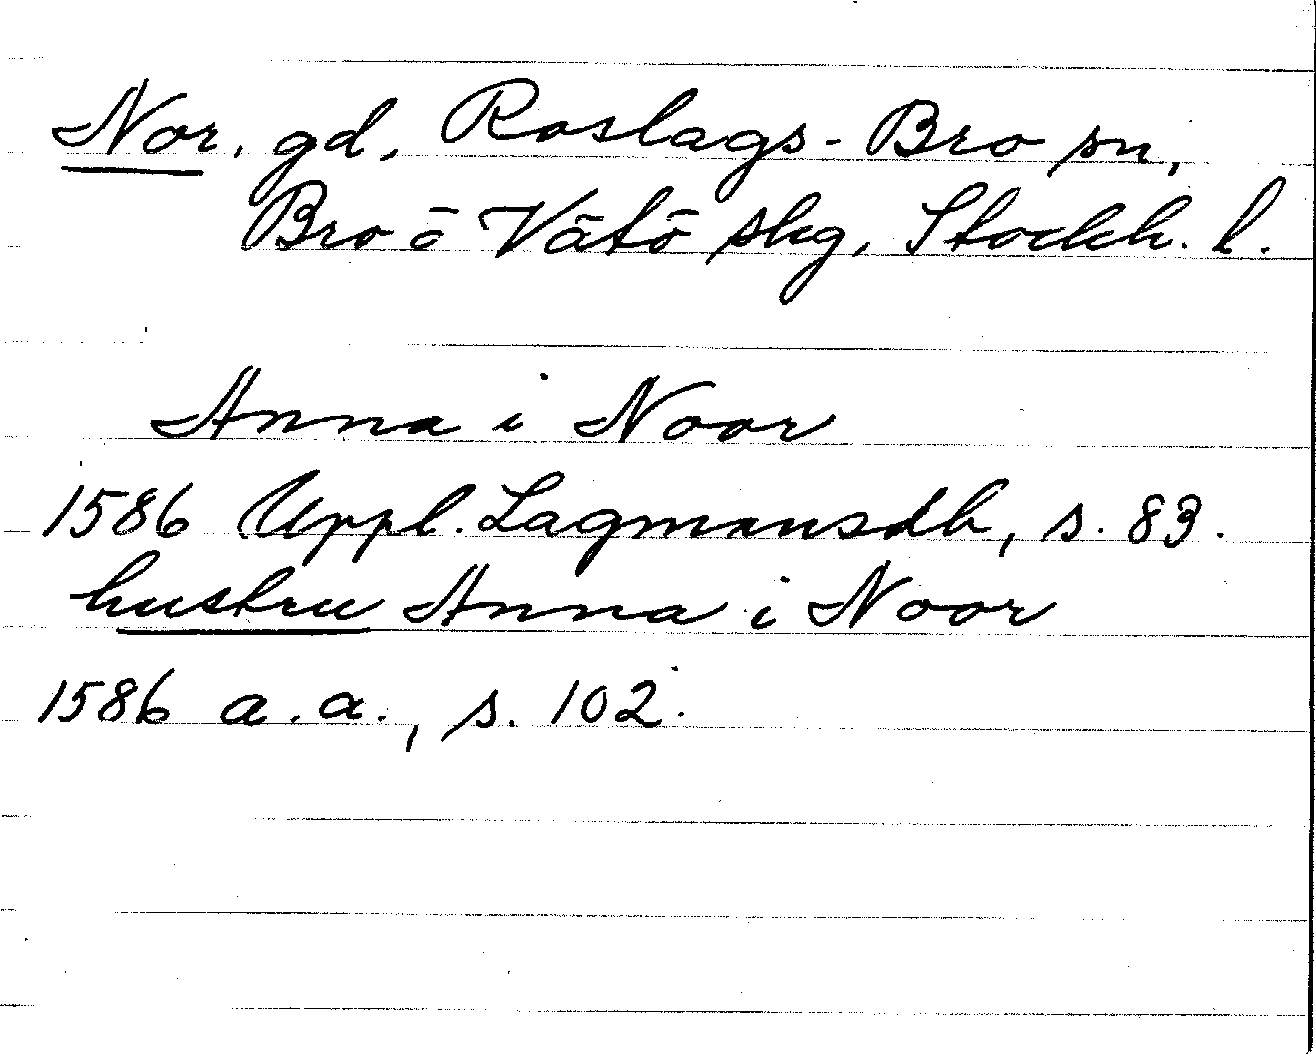 Nor, gd, Roslags-Bro sn,
Bro o Vätö skg, Stockh. l.
Anna i Noor
1586 Uppl. Lagmansdb, s. 83.
hustru Anna i Noor
1586 a.a., s. 102.